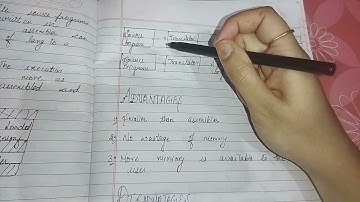 source programs
written in
assembler can
of being to a
The execution
more as
assembled and
loaded
Source → Translator
Program
Source → Translator
Program
ADVANTAGES
1) Smaller than assembler
2) No wastage of memory
3) More memory is available to the
user.
DISADVANTAGES